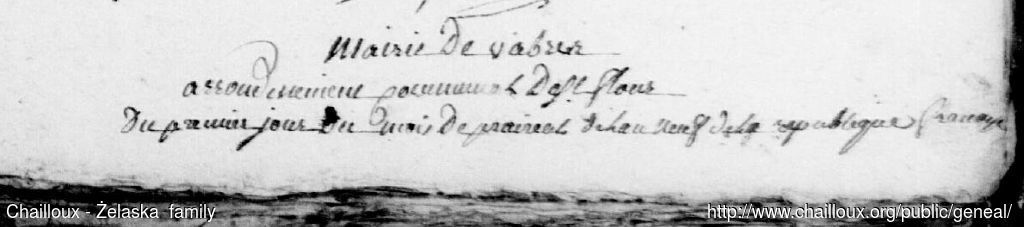 Mairie De vabres
arrondissement communal De St flour
Du premier jour Du mois De prairial de lan neuf de la republique francaise
Chailloux - Żelaska family
http://www.chailloux.org/public/geneal/